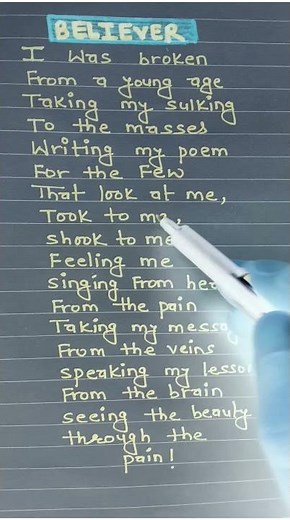 BELIEVER
I was broken
From a young age
Taking my sulking
To the masses
Writing my poem
For the Few
That look at me,
Took to me,
shook to me
Feeling me
singing From
From the pain
Taking my
From the veins
speaking my
From the brain
seeing the beauty
through the
pain!